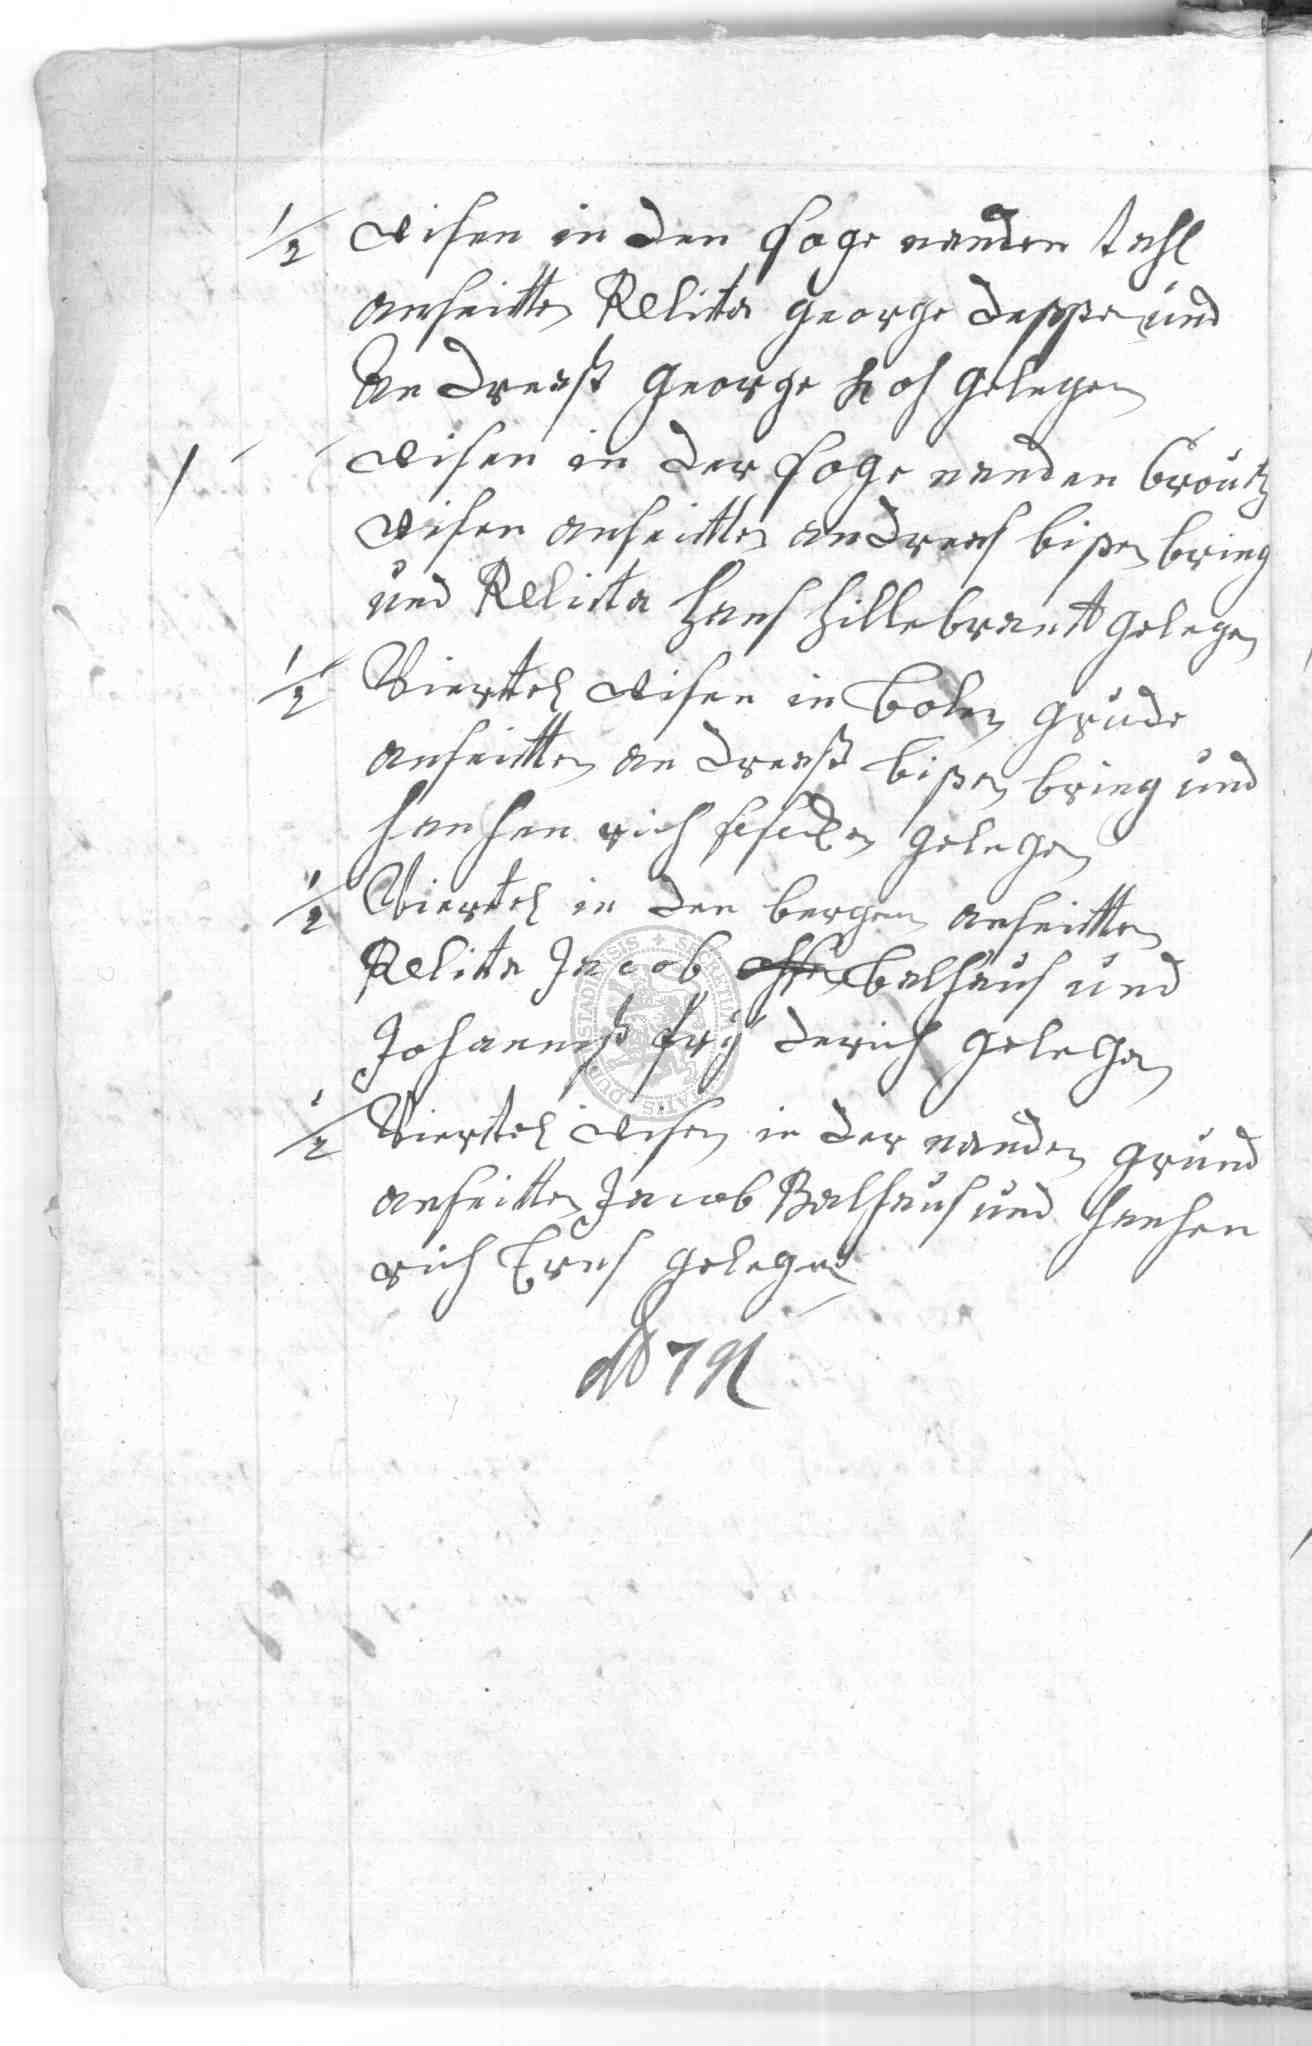 1/2 Wisen in den soge nanden tahl
anseitten Relita george deppe und
An dreaß george Koh gelegen
1 Wisen in der soge nanden Broutz
Wisen anseitten andreas bißen bring
und Relicta Hans Hillebrantt gelegen
1/2 Viertel Wisen in bolen grude
anseitten an dreaß bißen bring und
Hanhen rich gelegen
1/2 Viertel in den bergen anseitten
Relitta Jacob balhaus und
Johanneß fry derich gelegen
1/2 Viertel Wisen in der nanden grund
anseitten Jacob Balhaus und Hanhen
rich Erns gelegen
SECRETUM CIVITATIS DUDERSTADIENSIS